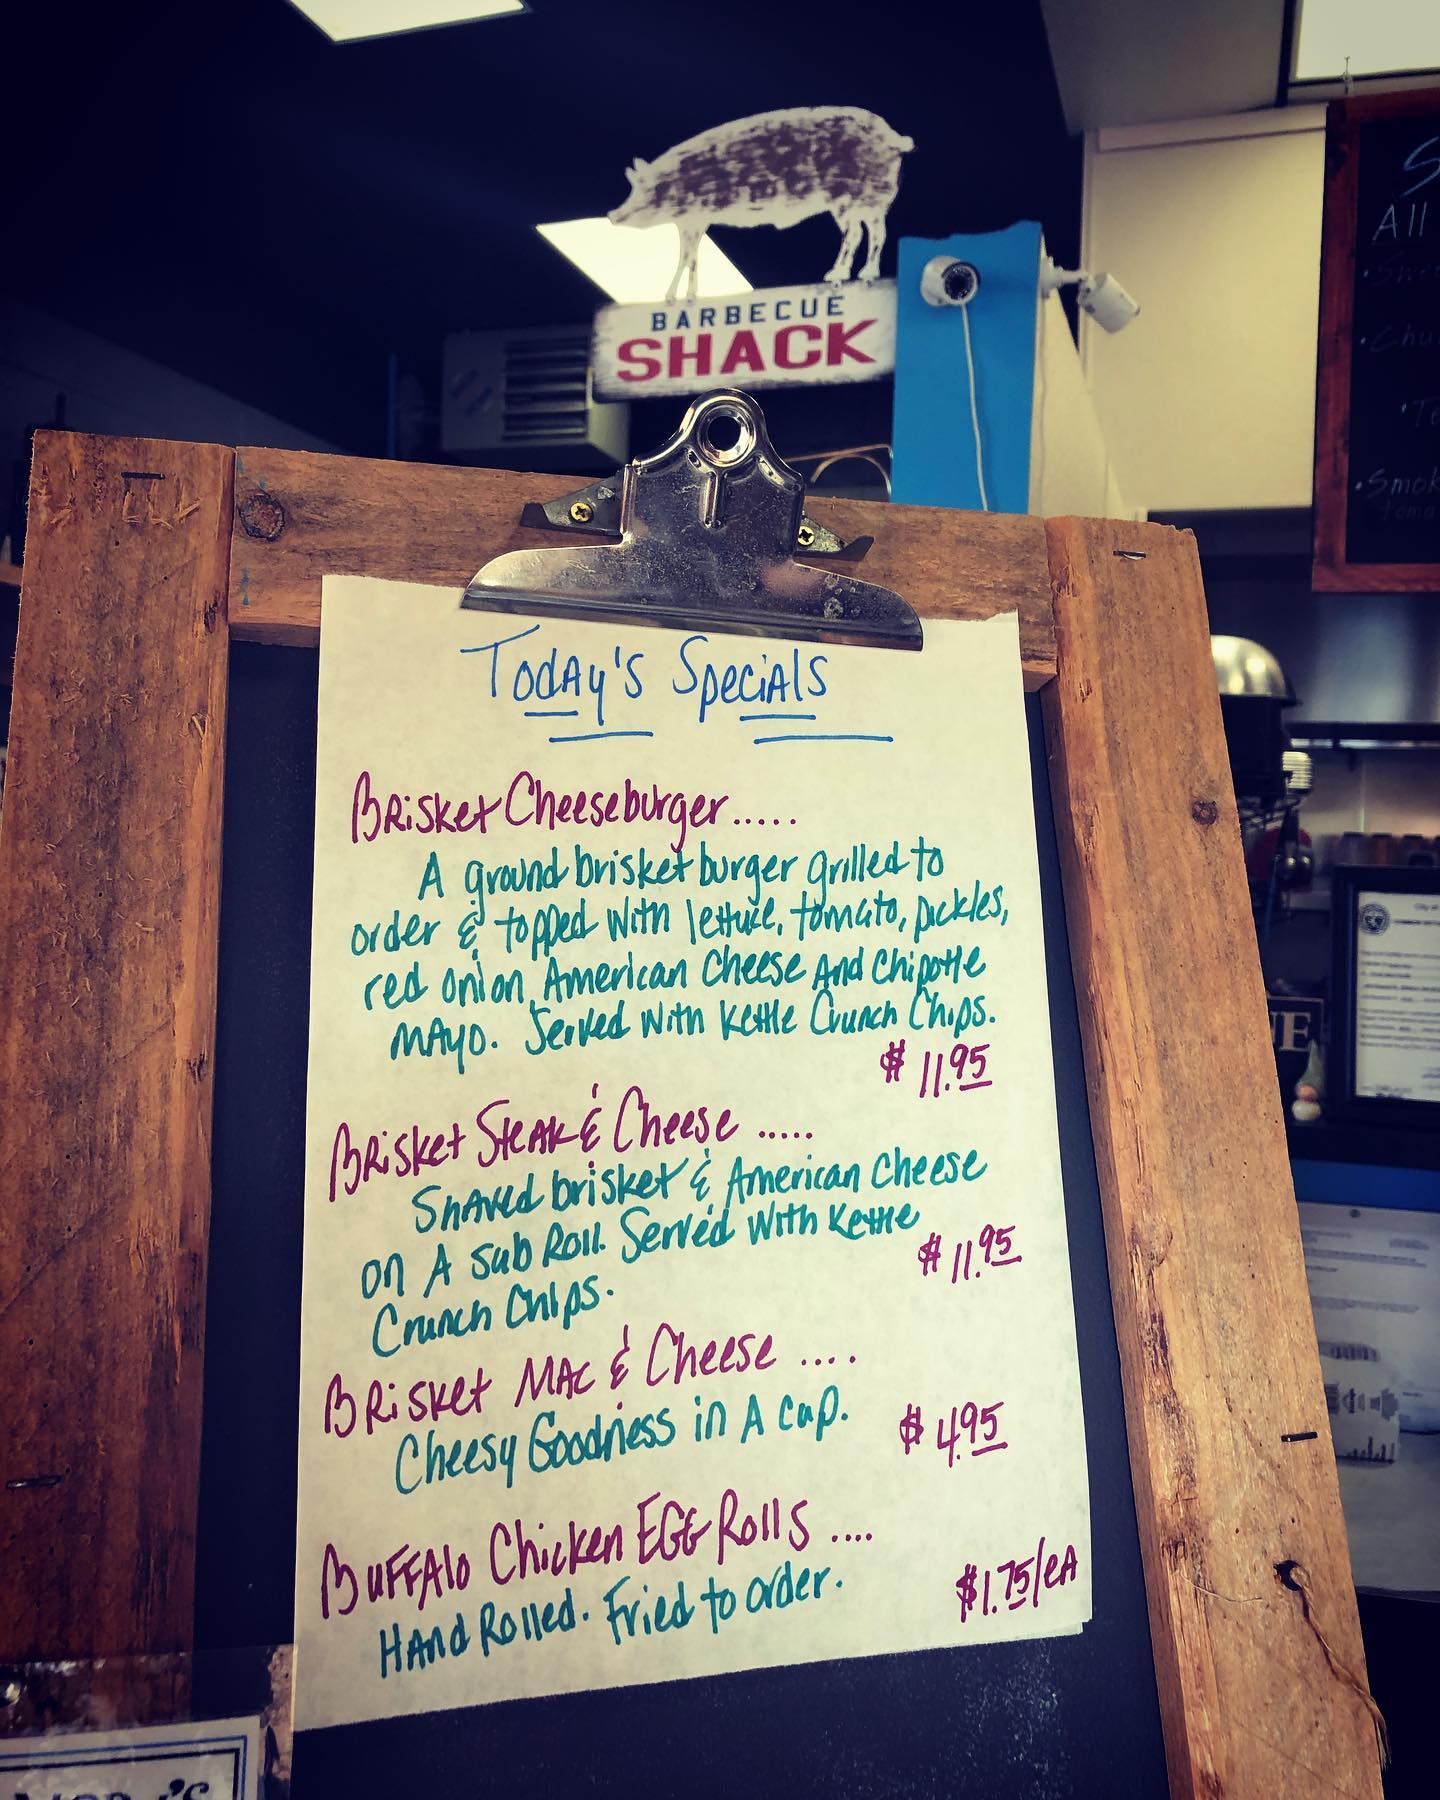 BARBECUE
SHACK
All
Today's Specials
Brisket Cheeseburger.....
A ground brisket burger grilled to
order & topped with lettuce, tomato, pickles,
red onion, American Cheese And Chipotle
MAyo. Served with Kettle Crunch Chips.
$11.95
Brisket Steak & Cheese .....
Shaved brisket & American Cheese
on A sub Roll. Served with Kettle
$11.95
Crunch Chips.
Brisket MAC & Cheese ....
Cheesy Goodness in A cup.
$4.95
Buffalo Chicken EGG Rolls ....
Hand Rolled. Fried to order.
$1.75/eA